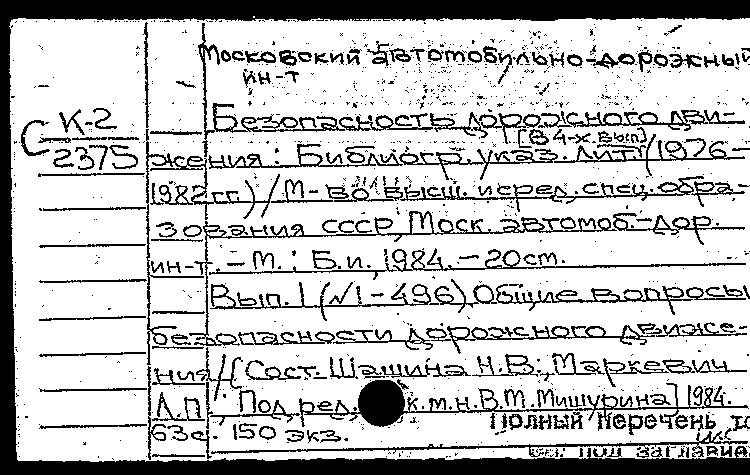 Московский автомобильно-дорожный
ин-т
Безопасность дорожного дви-
[В 4-х вып]
С К-2
2375
жения: Библиогр. указ. лит. (1976-
1982 гг.) / М-во высш. и сред. спец. обра-
зования СССР, Моск. автомоб.-дор.
ин-т. - М.: Б.и., 1984. - 20 см.
Вып. 1 (№1-496) Общие вопросы
безопасности дорожного движе-
ния / [Сост. Шашина Н.В., Маркевич
Л.П.; Под ред. к.т.н. В.М. Мишурина] 1984.
Полный перечень
63 с. 150 экз.
под заглавие